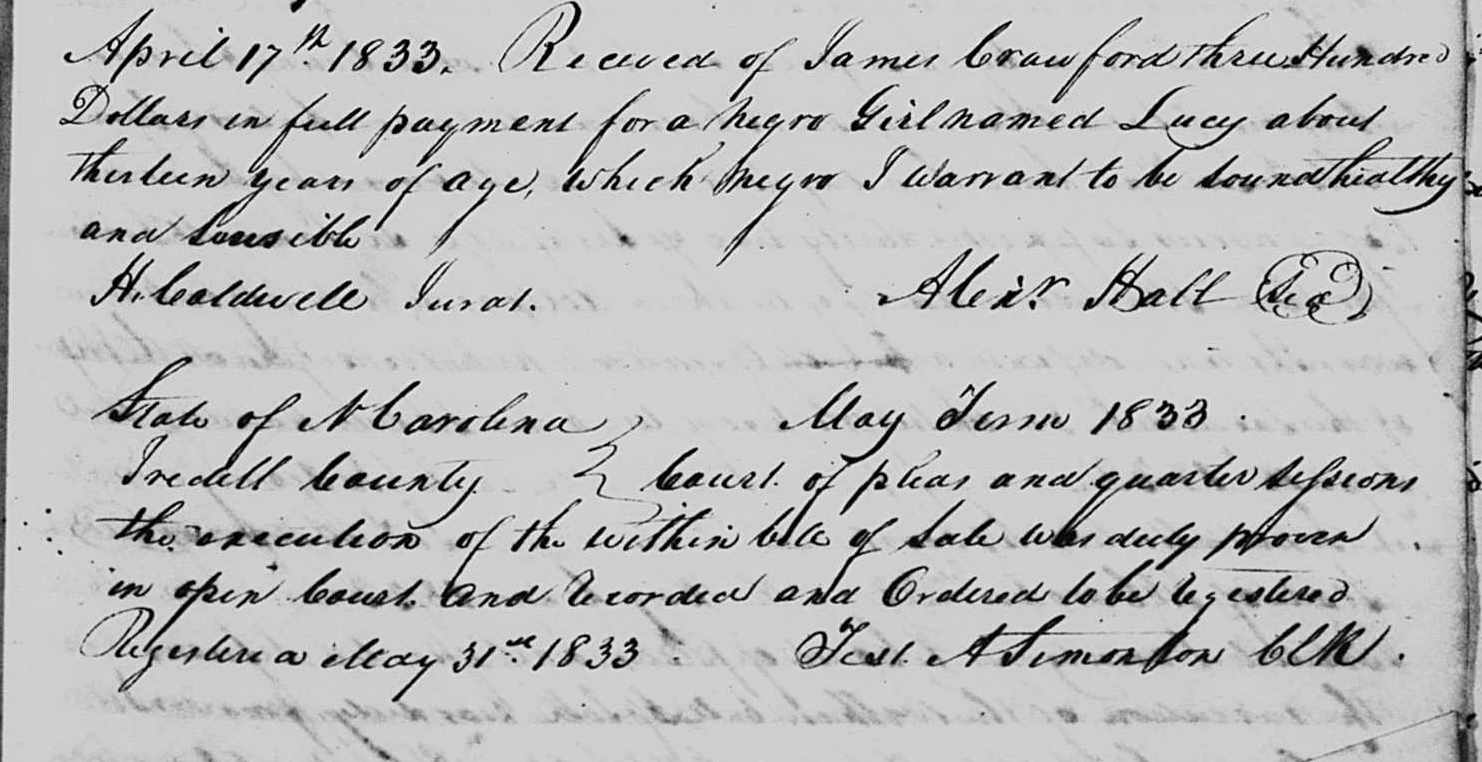 April 17th 1833. Received of James Crawford three Hundred
Dollars in full payment for a negro Girl named Lucy about
thirteen years of age, which negro I Warrant to be sound healthy
and sensible
H. Caldwell Jurat. Alexr Hall Seal
State of N Carolina May Term 1833.
Iredell County Court of pleas and quarter sessions
the execution of the within bill of Sale was duly proven
in open Court. and recorded and Ordered to be registered
Registered May 31st 1833 Test. A Simonton Clk.